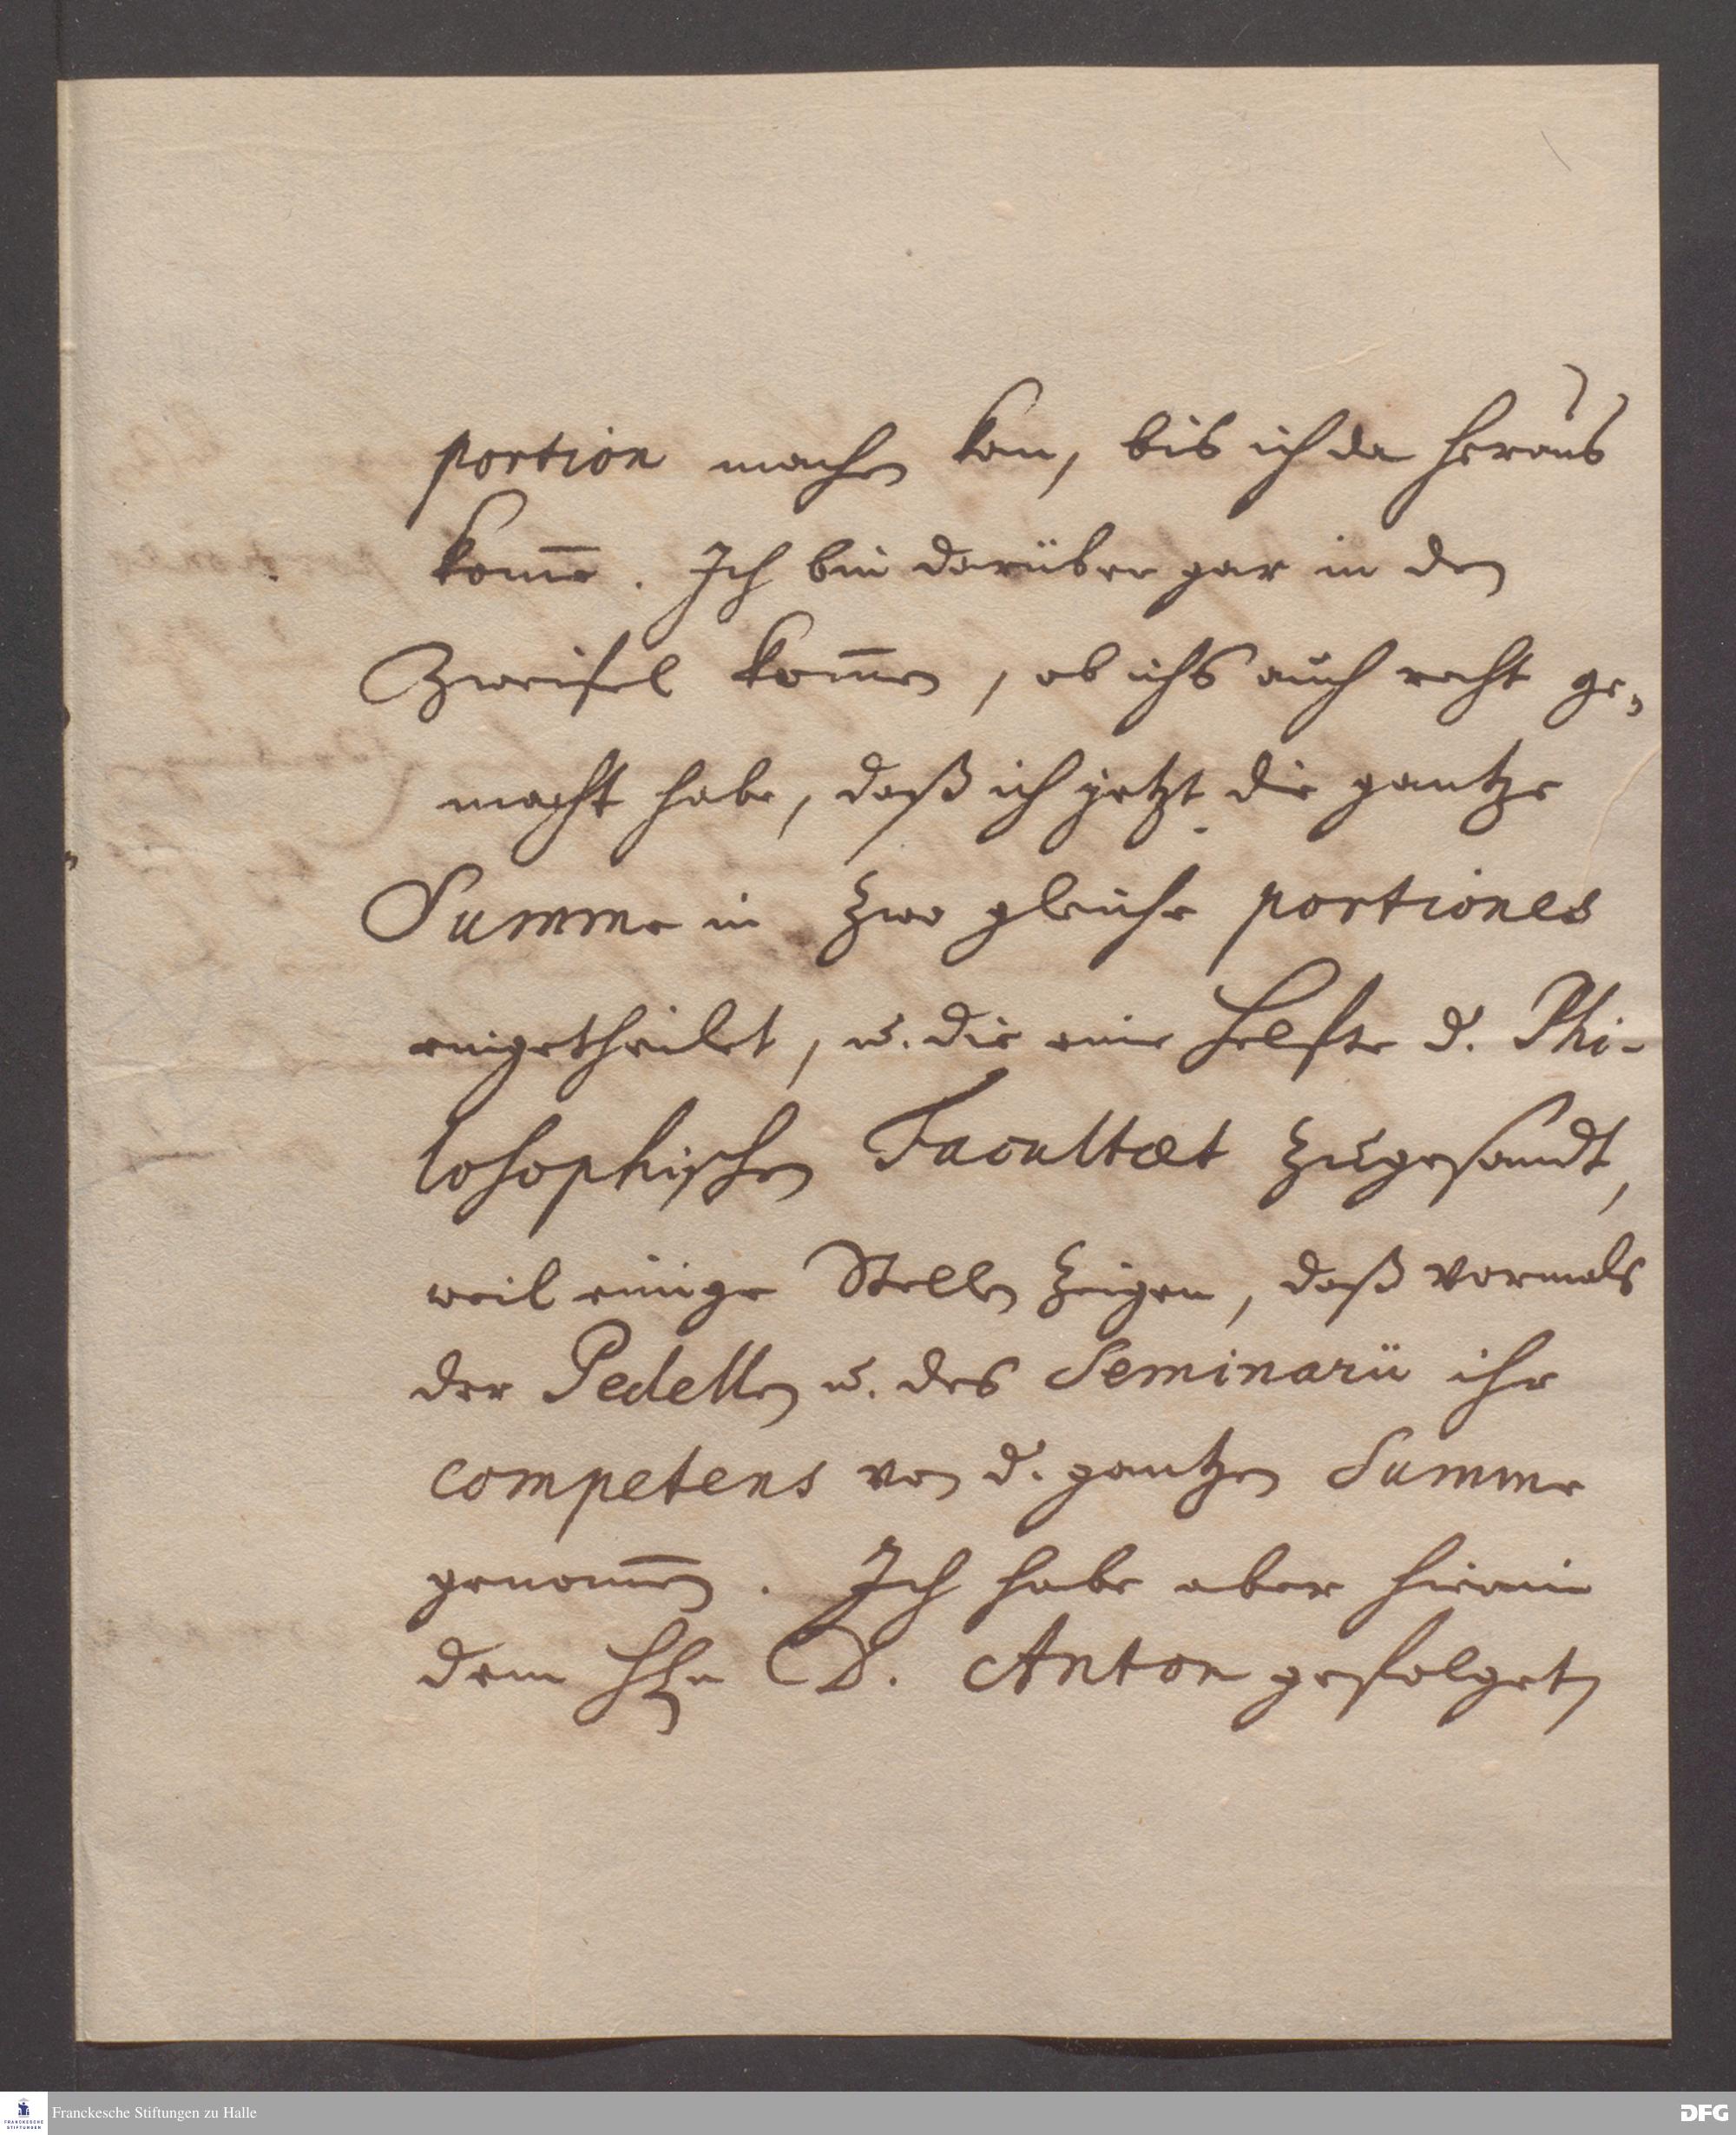 portion machen kan, bis ich da heraus
kom̄e. Ich bin darüber gar in den
Zweifel kom̄en, ob ichs auch recht ge-
macht habe, daß ich jetzt die gantze
Summe in zwo gleiche portiones
eingetheilet, u. die eine Helfte d. Phi-
losophischen Facultæt zugesandt,
weil einige Stellen zeigen, daß vormals
der Pedellen u. des Seminarii ihr
competens von d. gantzen Summe
genom̄en. Ich habe aber hierin
dem HEn D. Anton gefolget,
Franckesche Stiftungen zu Halle
FRANCKESCHE
STIFTUNGEN
DFG